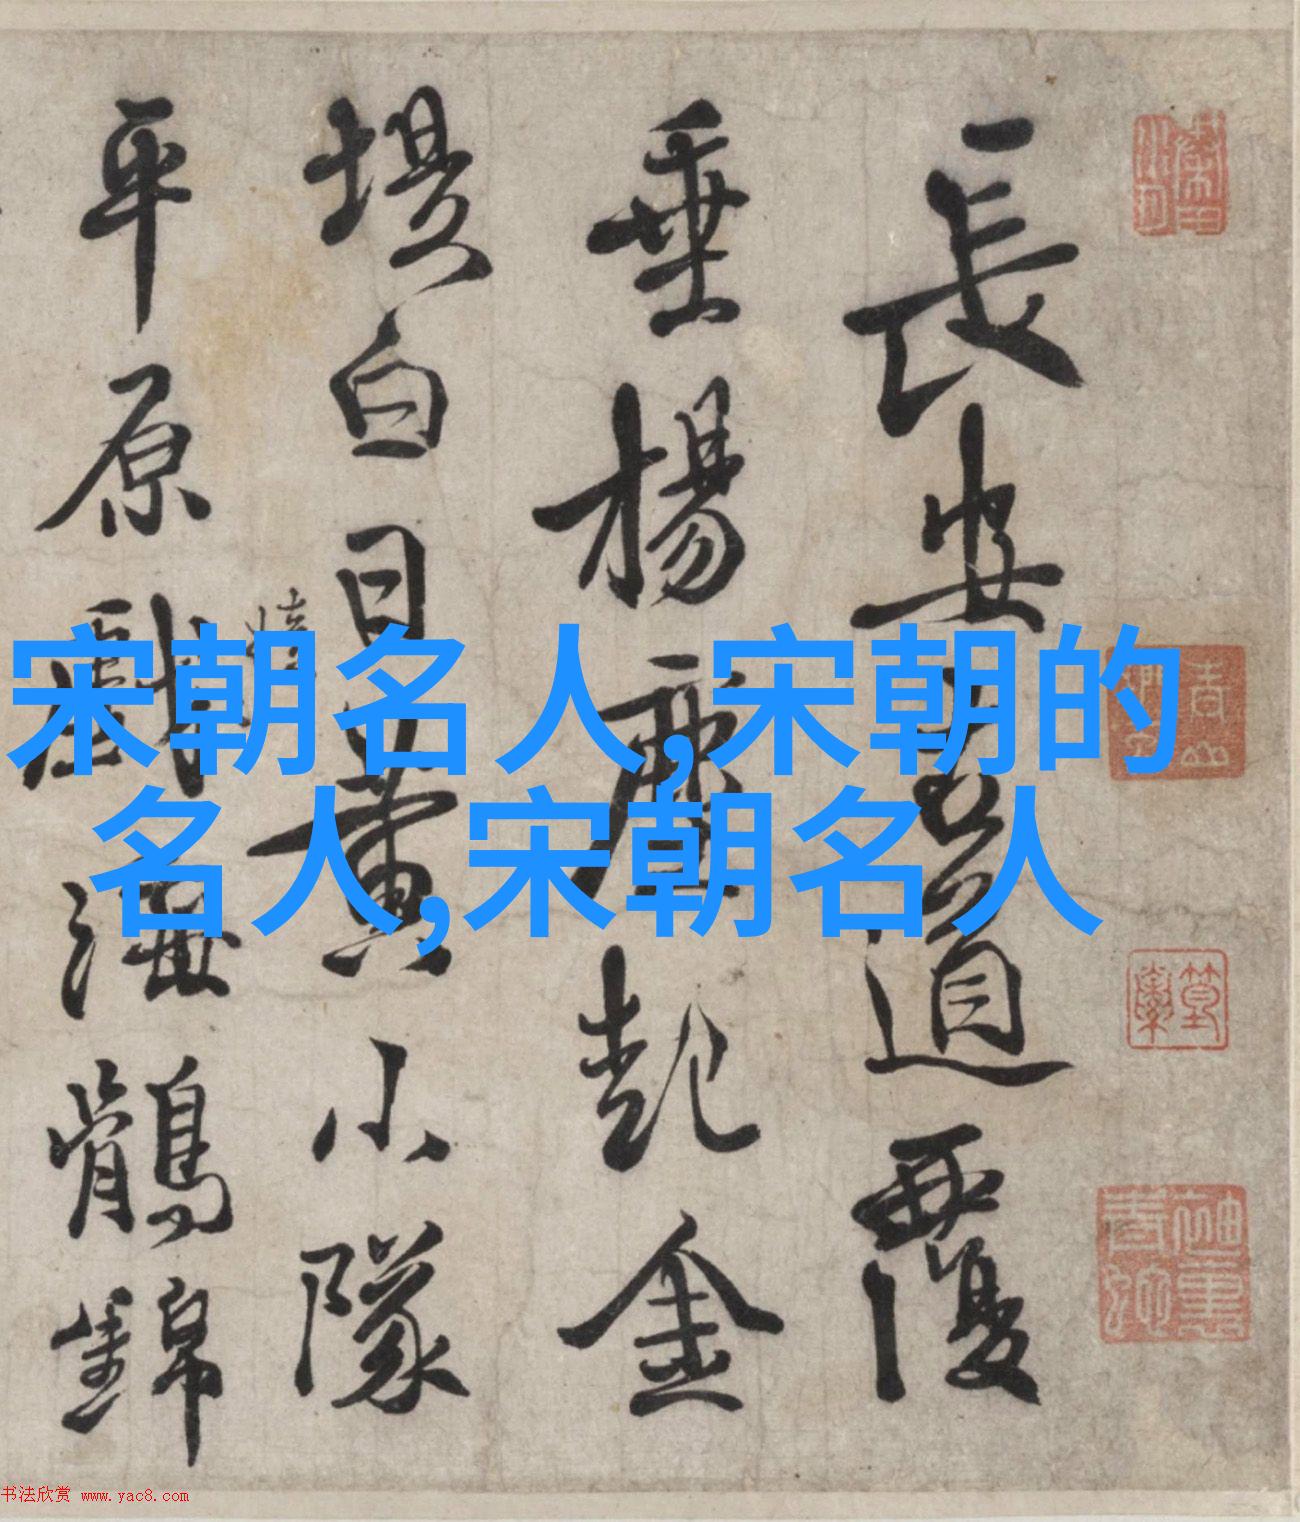 長安古道覆
垂楊塵起金
堤白日黃小隊
平原戲海鶻錦
宋朝名人,宋朝的
名人,宋朝名人
书法欣赏 www.yac8.com